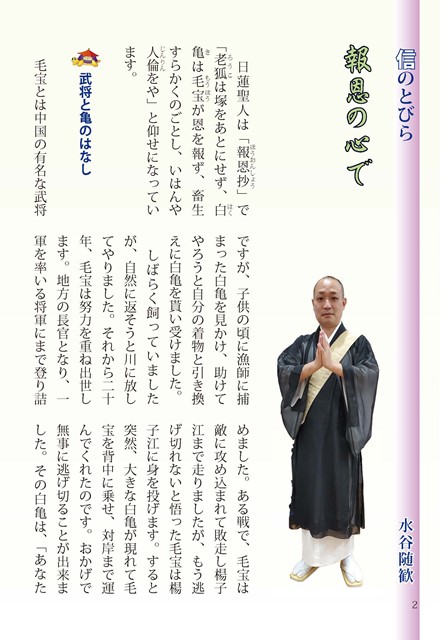 信のとびら
報恩の心で
水谷随歓
日蓮聖人は「報恩抄」で
ほうおんしょう
「老狐は塚をあとにせず、白
ろうこ
はく
亀は毛宝が恩を報ず、畜生
き
もうほう
すらかくのごとし、いはんや
人倫をや」と仰せになってい
じんりん
ます。
武将と亀のはなし
毛宝とは中国の有名な武将
ですが、子供の頃に漁師に捕
まった白亀を見かけ、助けて
やろうと自分の着物と引き換
えに白亀を貰い受けました。
しばらく飼っていました
が、自然に返そうと川に放し
てやりました。それから二十
年、毛宝は努力を重ね出世し
ます。地方の長官となり、一
軍を率いる将軍にまで登り詰
めました。ある戦で、毛宝は
敵に攻め込まれて敗走し楊子
江まで走りましたが、もう逃
げ切れないと悟った毛宝は楊
子江に身を投げます。すると
突然、大きな白亀が現れて毛
宝を背中に乗せ、対岸まで運
んでくれたのです。おかげで
無事に逃げ切ることが出来ま
した。その白亀は、「あなた
2